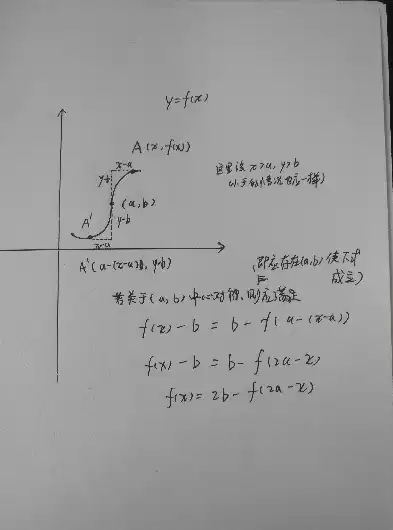 y=f(x)
A(x,f(x))
x-a
y-b
这里设 x>a, y>b
(小于的情况也一样)
(a,b)
A'
y-b
x-a
A'(a-(x-a), y-b)
(即应存在(a,b)使下式
成立)
若关于(a,b)中心对称,则应满足
f(x)-b=b-f(a-(x-a))
f(x)-b=b-f(2a-x)
f(x)=2b-f(2a-x)